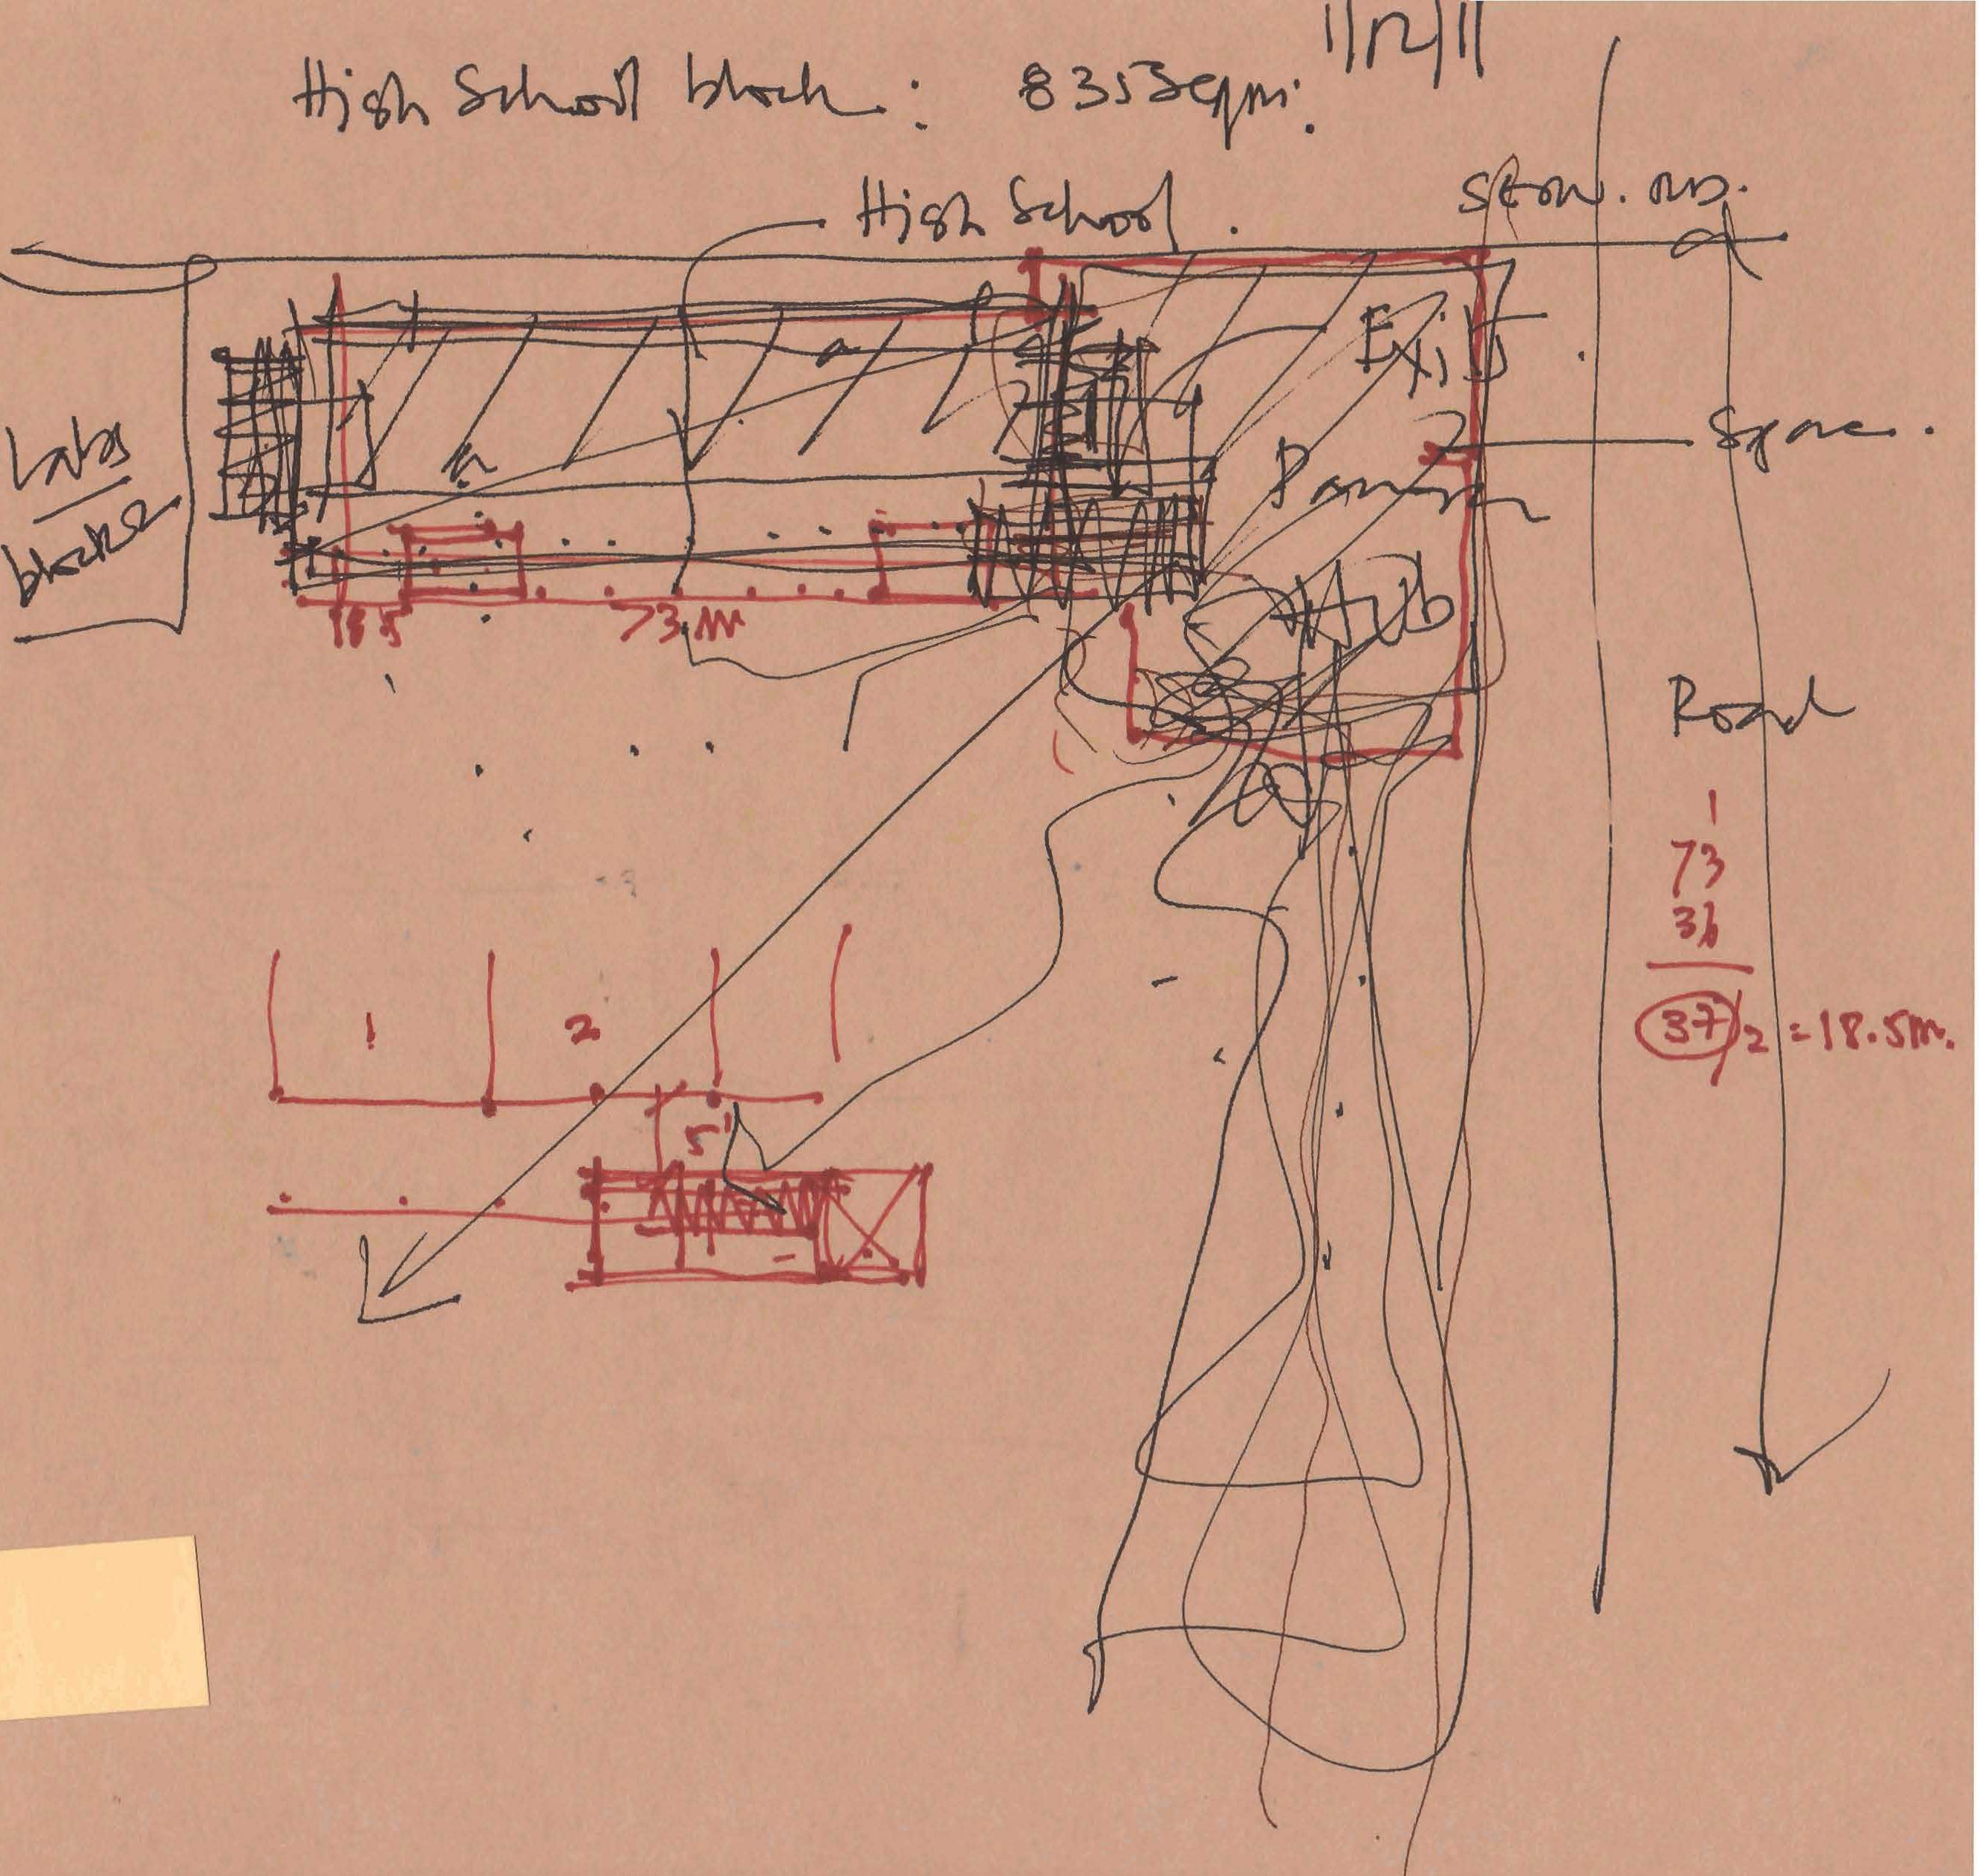 1/12/11
High School block : 835 Sqm.
High School.
Labs
block
Space.
Hub
18.5
73 m
Road
1
73
36
37/2 = 18.5m.
1
2
5'